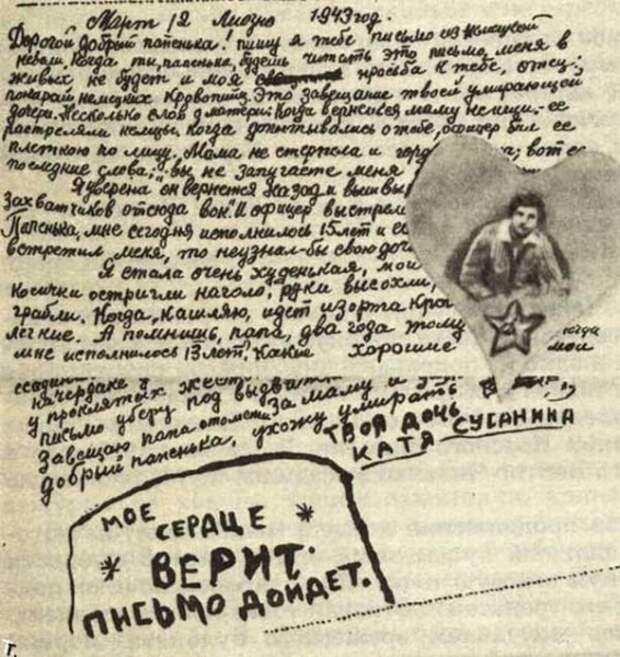 Март 12 Лиозно 1943 год.
Дорогой добрый папенька! пишу я тебе письмо из немецкой
неволи. Когда ты, папенька, будешь читать это письмо, меня в
живых не будет и моя просьба к тебе, отец:
покарай немецких кровопийц. Это завещание твоей умирающей
дочери. Несколько слов о матери. Когда вернешься маму не ищи. ее
расстреляли немцы. Когда допытывались о тебе, офицер бил ее
плеткою по лицу. Мама не стерпела и вот ее
последние слова; "вы не запугаете меня
Я уверена он вернется назад и вышвы
захватчиков отсюда вон". И офицер выстрел
Папенька, мне сегодня исполнилось 15 лет и ес
встретил меня, то не узнал-бы свою доч
Я стала очень худенькая, мои
косички остригли наголо, руки высохли,
грабли. Когда кашляю, идет из орта кро
легкие. А помнишь, папа, два года тому когда
мне исполнилось 13 лет? Какие хорошие мои
на чердаке у
у проклятых жест
письмо уберу под выдват
Завещаю папа отомсти за маму и
добрый папенька, ухожу умирать
ТВОЯ ДОЧЬ
КАТЯ СУСАНИНА
МОЕ
СЕРДЦЕ
ВЕРИТ.
ПИСЬМО ДОЙДЕТ.
г.